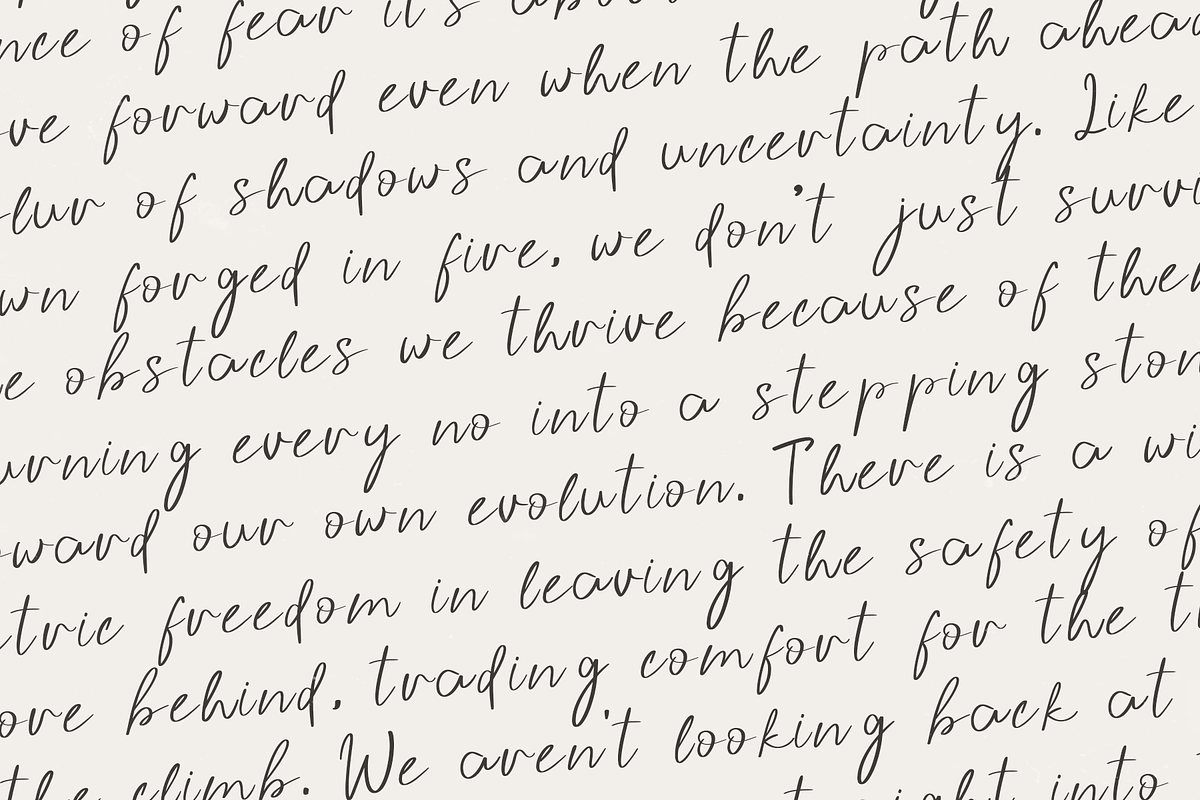 of fear it's
forward even when the path ahead
of shadows and uncertainty. Like
forged in fire, we don't just
obstacles we thrive because of
every no into a stepping
our own evolution. There is a
freedom in leaving the safety of
behind, trading comfort for the
the climb. We aren't looking back at
into